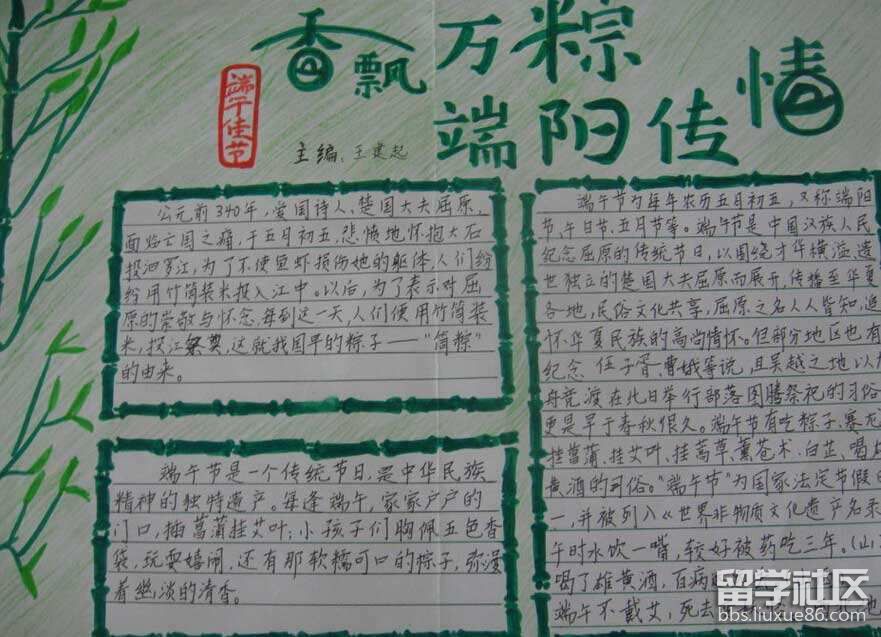 香飘万粽
端阳传情
端午佳节
主编:王建起
公元前340年,爱国诗人、楚国大夫屈原,
面临亡国之痛,于五月初五,悲愤地怀抱大石
投汨罗江,为了不使鱼虾损伤他的躯体,人们纷
纷用竹筒装米投入江中。以后,为了表示对屈
原的崇敬与怀念,每到这一天,人们便用竹筒装
米,投江祭奠,这就我国早的粽子——“筒粽”
的由来。
端午节是一个传统节日,是中华民族
精神的独特遗产。每逢端午,家家户户的
门口,插菖蒲挂艾叶;小孩子们胸佩五色香
袋,玩耍嬉闹,还有那软糯可口的粽子,弥漫
着幽淡的清香。
端午节为每年农历五月初五,又称端阳
节、午日节、五月节等。端午节是中国汉族人民
纪念屈原的传统节日,以围绕才华横溢、遗
世独立的楚国大夫屈原而展开,传播至华夏
各地,民俗文化共享,屈原之名人人皆知,追
怀华夏民族的高尚情怀。但部分地区也有
纪念 伍子胥、曹娥等说,且吴越之地以
舟竞渡在此日举行部落图腾祭祀的习俗
更是早于春秋很久。端午节有吃粽子、赛龙
挂菖蒲、挂艾叶、挂蒿草、薰苍术、白芷、喝
黄酒的习俗。“端午节”为国家法定节假
一,并被列入《世界非物质文化遗产名录
午时水饮一嘴,较好被药吃三年。(山
喝了雄黄酒,百病
端午不戴艾,死去
留学社区
bbs.liuxue86.com